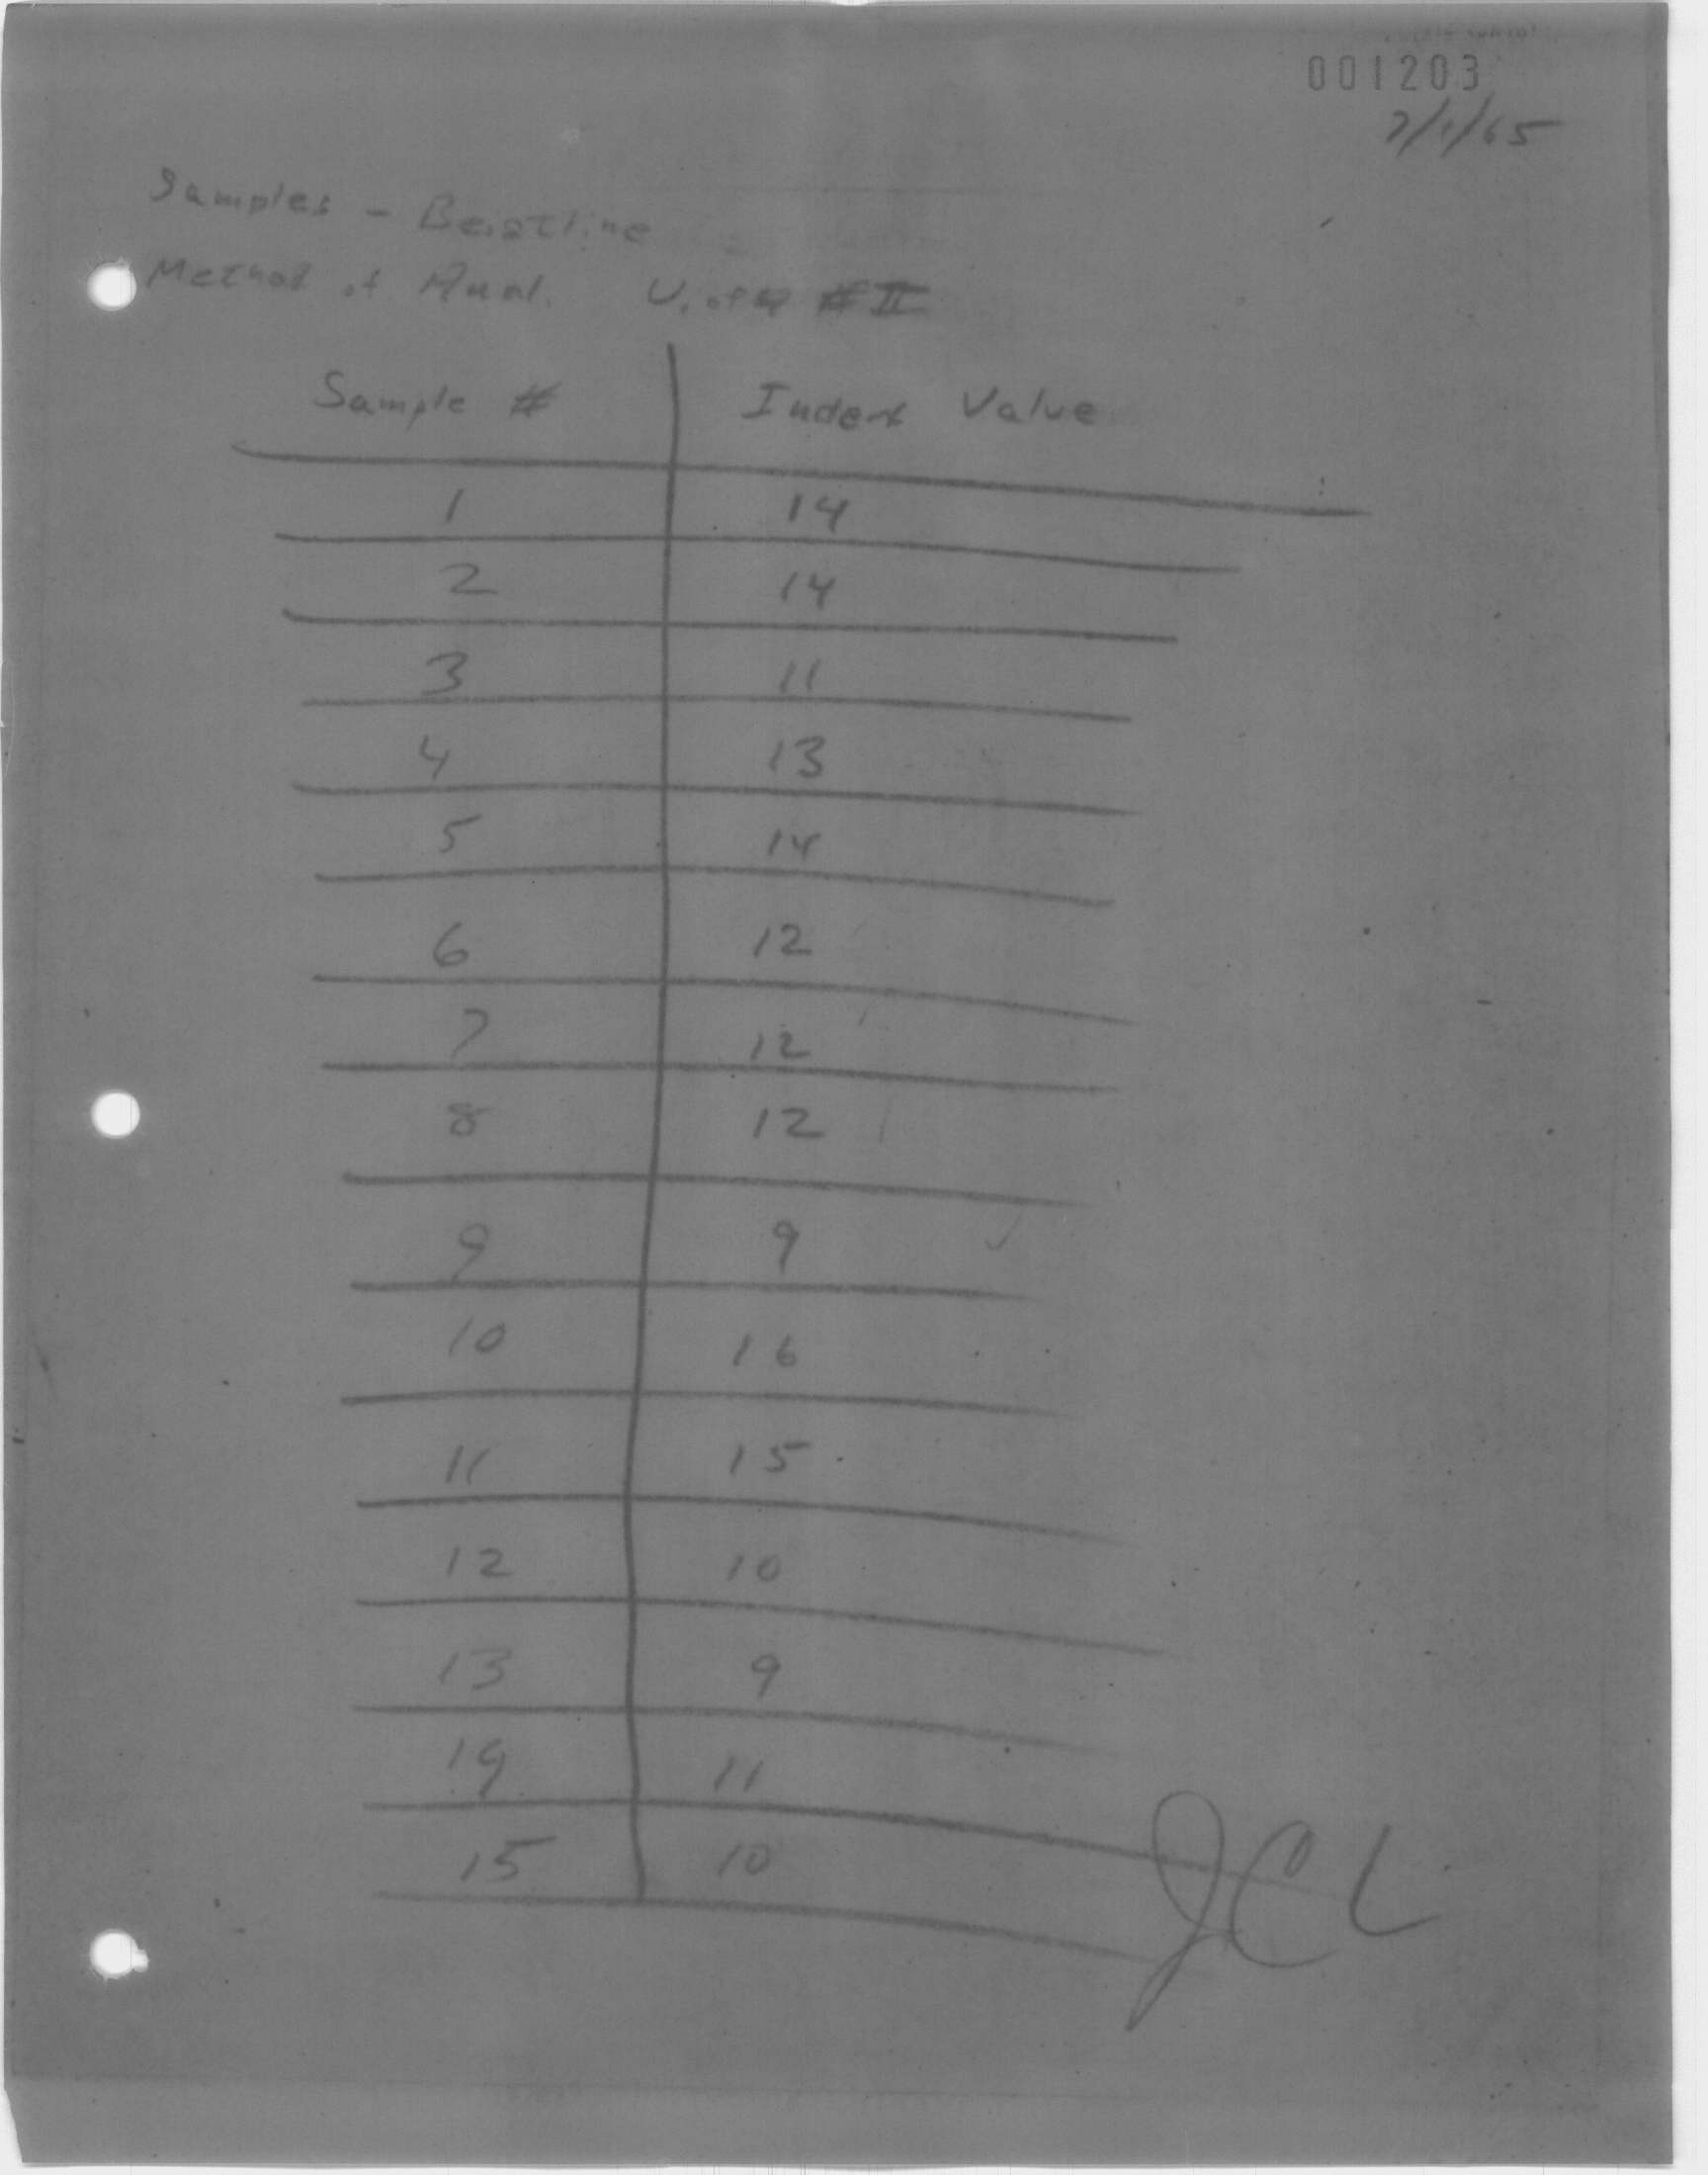 001203
7/1/65
Samples - Beistline
Method of Anal. U. of #II
Sample # Index Value
1 14
2 14
3 11
4 13
5 14
6 12
7 12
8 12
9 9
10 16
11 15
12 10
13 9
14 11
15 10
JCL